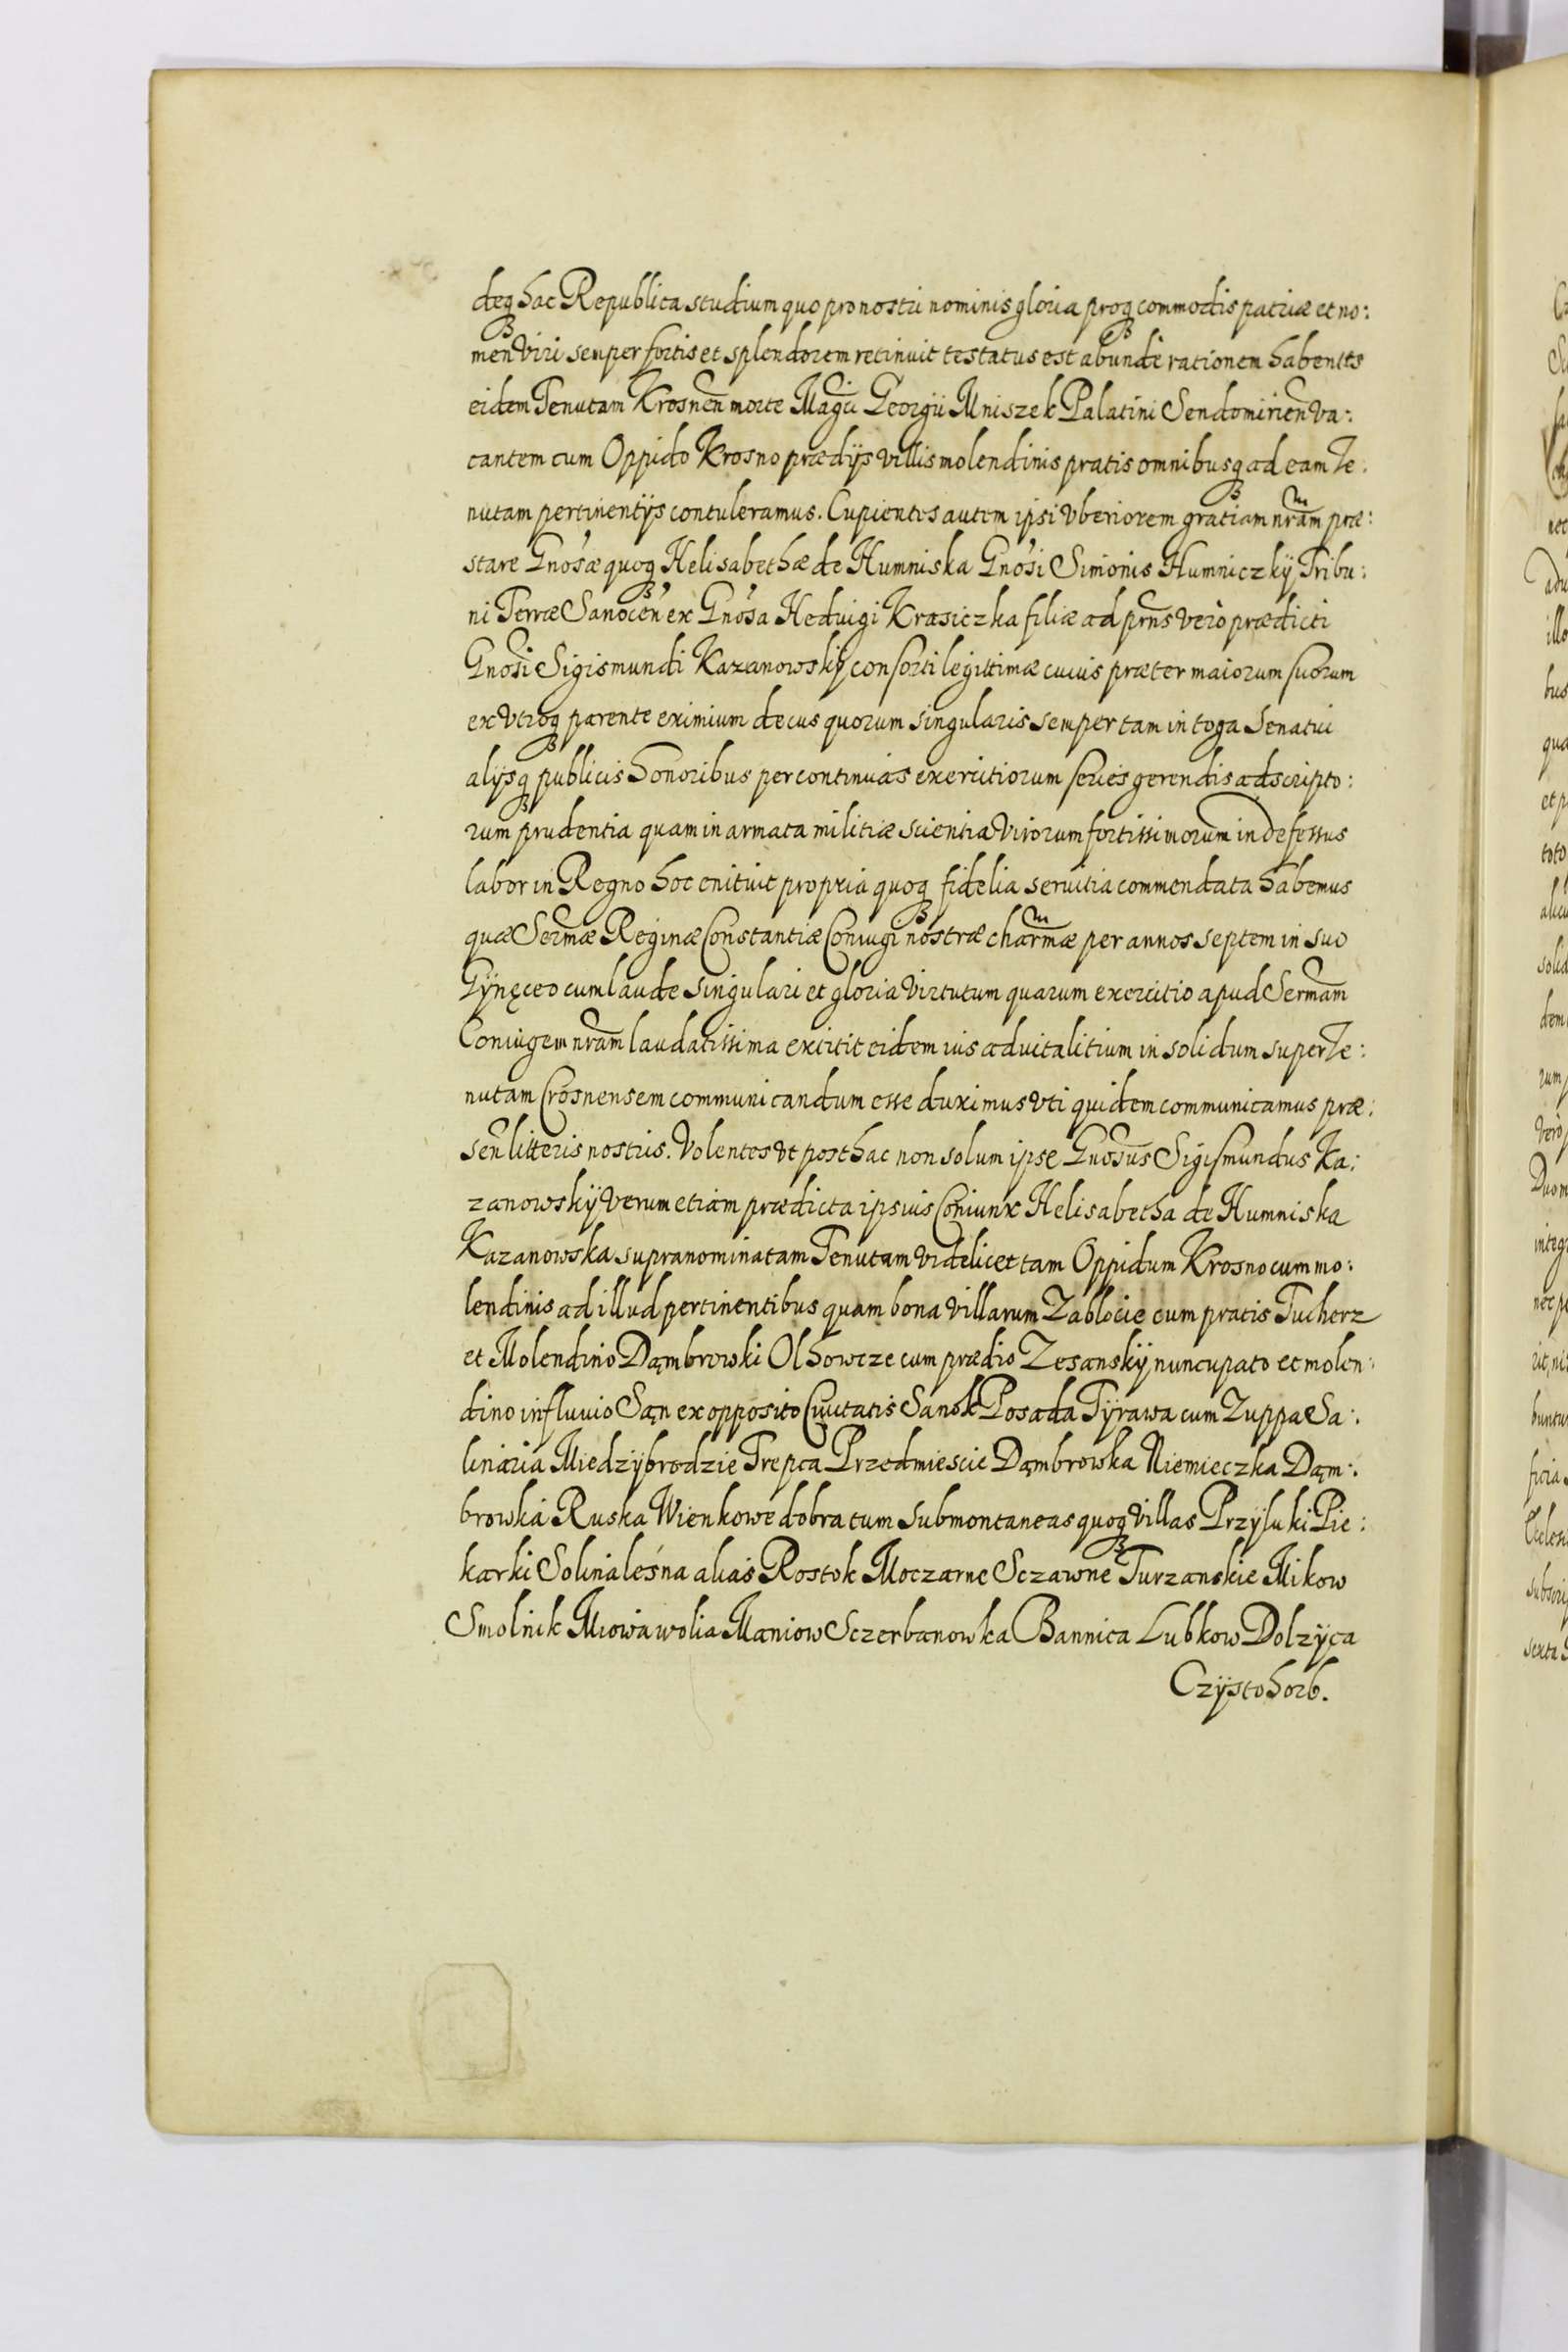 deq hac Republica studium quo pro nostri nominis gloria proq commodis patriæ et no:
men Viri semper fortis et splendorem retinuit testatus est abundè rationem habentes
eidem Tenutam Krosnen morte Magci Georgii Mniszek Palatini Sendomirien va:
cantem cum Oppido Krosno prædijs villis molendinis pratis omnibusq ad eam Te:
nutam pertinentijs contuleramus. Cupientes autem ipsi Vberiorem gratiam nram præ:
stare Gnosæ quoq Helisabethæ de Humniska Gnosi Simonis Humniczkÿ Tribu:
ni Terræ Sanocen ex Gnosa Heduigi Krasiczka filiæ ad prns vero prædicti
Gnosi Sigismundi Kazanowskÿ consorti legittimæ cuius præter maiorum suorum
ex Vtroq parente eximium decus quorum singularis semper tam in toga Senatui
alijsq publicis honoribus per continuas exercitiorum series gerendis adscripto:
rum prudentia quam in armata militiæ scientia Virorum fortissimorum indefessus
labor in Regno hoc enituit propria quoq fidelia seruitia commendata habemus
quæ Sermæ Reginæ Constantiæ Coniugi nostræ charmæ per annos septem in suo
Gÿnęceo cum laude singulari et gloria Virtutum quarum exercitio apud Sermam
Coniugem nram laudatissima exstitit eidem ius aduitalitium in solidum super Te:
nutam Crosnensem communicandum esse duximus vti quidem communicamus præ:
sen litteris nostris. Volentes vt posthac non solum ipse Gnosus Sigismundus Ka:
zanowskÿ verum etiam prædicta ipsius Coniunx Helisabetha de Humniska
Kazanowska supranominatam Tenutam videlicet tam Oppidum Krosno cum mo:
lendinis ad illud pertinentibus quam bona villarum Zablocie cum pratis Tucherz
et Molendino Dąmbrowski Olhowcze cum prædio Zesanskÿ nuncupato et molen:
dino in fluuio Sąn ex opposito Ciuitatis Sanok Posada Tÿrawa cum Zuppa Sa:
linaria Miedzÿbrodzie Trepca Przedmiescie Dąmbrowka Niemieczka Dąm:
browka Ruska Wienkowe dobra tum submontaneas quoq villas Przÿluki Pie:
karki Solinalesna alias Rostok Moczarne Sczawne Turzanskie Mikow
Smolnik Miowa wolia Maniow Sczerbanowka Bannica Lubkow Dolzÿca
Czÿstohorb.